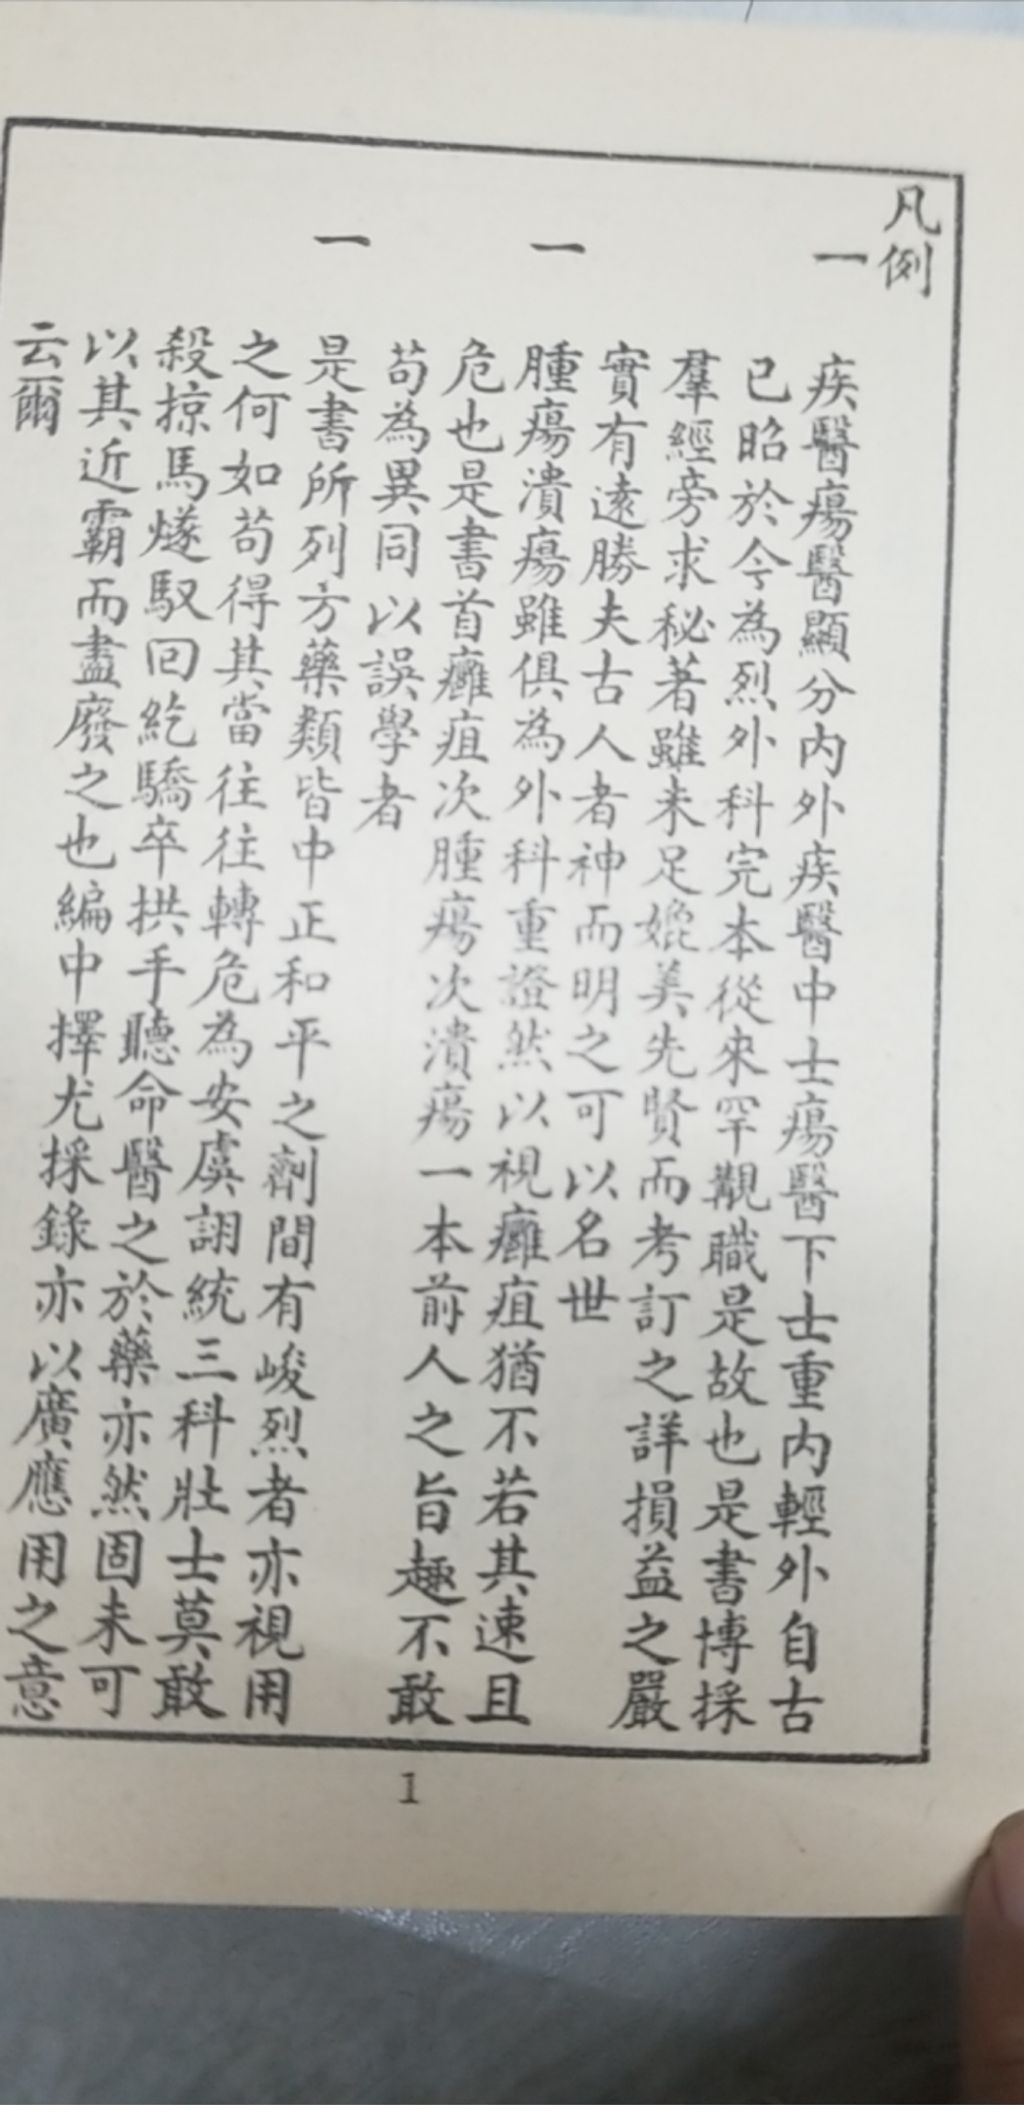 凡例
一
疾醫瘍醫顯分內外疾醫中士瘍醫下士重內輕外自古
已昭於今為烈外科完本從來罕覯職是故也是書博採
羣經旁求秘著雖未足媲美先賢而考訂之詳損益之嚴
實有遠勝夫古人者神而明之可以名世
一
腫瘍潰瘍雖俱為外科重證然以視癰疽猶不若其速且
危也是書首癰疽次腫瘍次潰瘍一本前人之旨趣不敢
苟為異同以誤學者
一
是書所列方藥類皆中正和平之劑間有峻烈者亦視用
之何如苟得其當往往轉危為安虞詡統三科壯士莫敢
殺掠馬燧馭回紇驕卒拱手聽命醫之於藥亦然固未可
以其近霸而盡廢之也編中擇尤採錄亦以廣應用之意
云爾
1